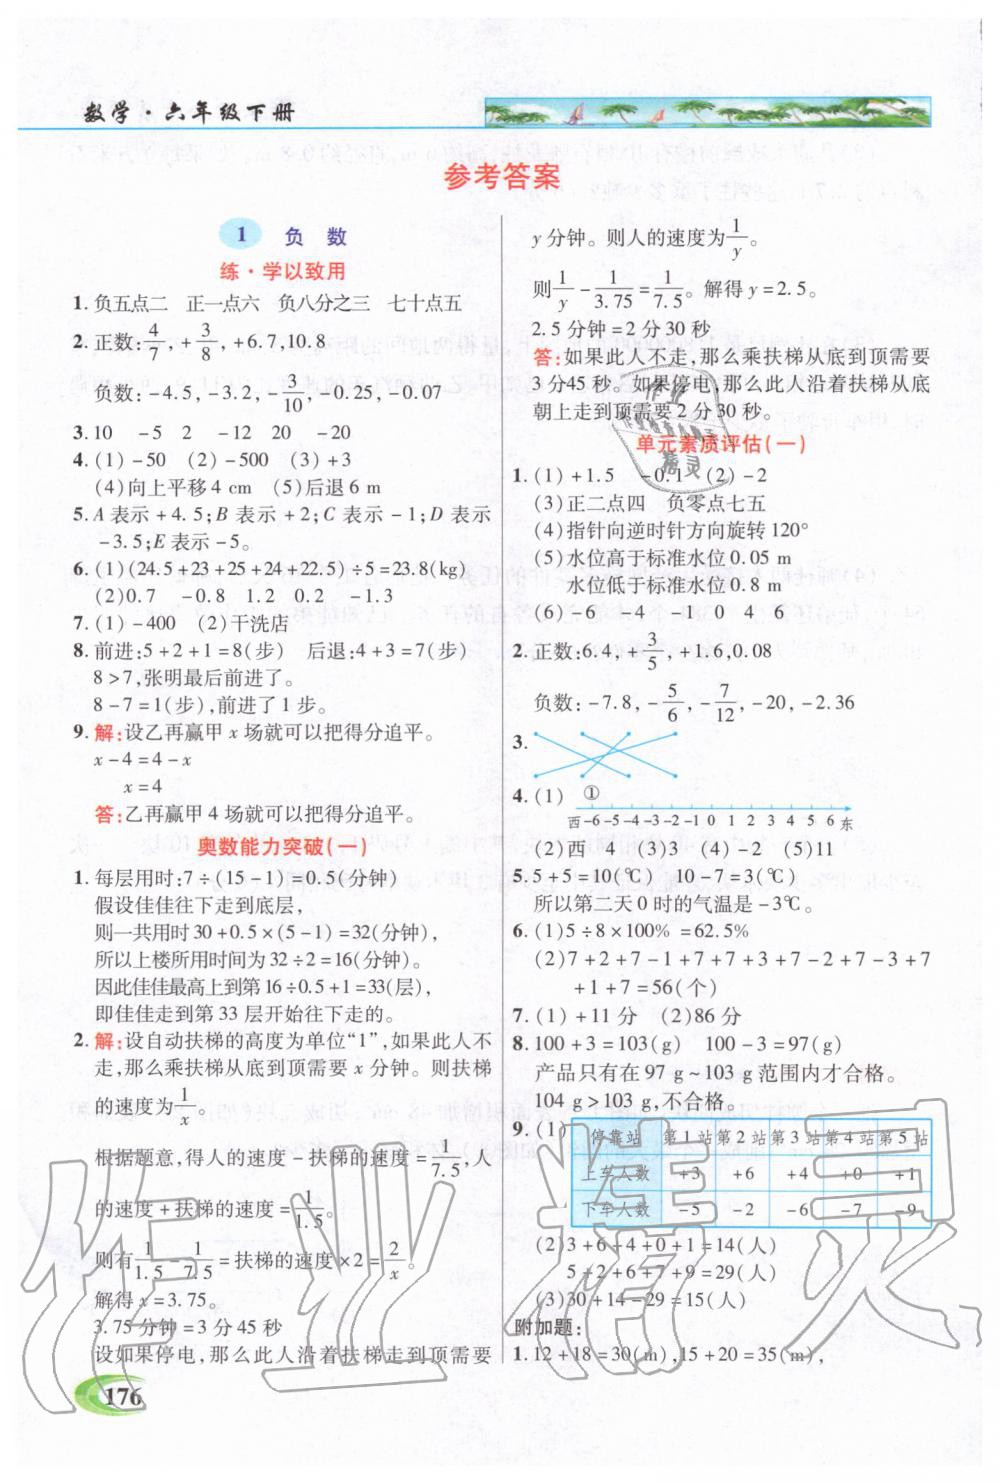 数学·六年级下册
参考答案
1 负 数
练·学以致用
1. 负五点二 正一点六 负八分之三 七十点五
2. 正数: 4/7, +3/8, +6.7, 10.8
负数: -4.5, -3.2, -3/10, -0.25, -0.07
3. 10 -5 2 -12 20 -20
4. (1) -50 (2) -500 (3) +3
(4)向上平移4 cm (5)后退6 m
5. A表示+4.5;B表示+2;C表示-1;D表示
-3.5;E表示-5。
6. (1)(24.5+23+25+24+22.5)÷5=23.8(kg)
(2)0.7 -0.8 1.2 0.2 -1.3
7. (1) -400 (2)干洗店
8. 前进:5+2+1=8(步) 后退:4+3=7(步)
8>7,张明最后前进了。
8-7=1(步),前进了1步。
9. 解:设乙再赢甲x场就可以把得分追平。
x-4=4-x
x=4
答:乙再赢甲4场就可以把得分追平。
奥数能力突破(一)
1. 每层用时:7÷(15-1)=0.5(分钟)
假设佳佳往下走到底层,
则一共用时30+0.5×(5-1)=32(分钟),
所以上楼所用时间为32÷2=16(分钟)。
因此佳佳最高上到第16÷0.5+1=33(层),
即佳佳走到第33层开始往下走的。
2. 解:设自动扶梯的高度为单位“1”,如果此人不
走,那么乘扶梯从底到顶需要x分钟。则扶梯
的速度为1/x。
根据题意,得人的速度-扶梯的速度=1/7.5,人
的速度+扶梯的速度=1/1.5。
则有1/1.5-1/7.5=扶梯的速度×2=2/x。
解得x=3.75。
3.75分钟=3分45秒
设如果停电,那么此人沿着扶梯走到顶需要
176
y分钟。则人的速度为1/y。
则1/y-1/3.75=1/7.5。解得y=2.5。
2.5分钟=2分30秒
答:如果此人不走,那么乘扶梯从底到顶需要
3分45秒。如果停电,那么此人沿着扶梯从底
朝上走到顶需要2分30秒。
单元素质评估(一)
1. (1)+1.5 -0.1 (2)-2
(3)正二点四 负零点七五
(4)指针向逆时针方向旋转120°
(5)水位高于标准水位0.05 m
水位低于标准水位0.8 m
(6)-6 -4 -2 0 4 6
2. 正数:6.4, +3/5, +1.6, 0.08
负数: -7.8, -5/6, -7/12, -20, -2.36
3.
4. (1) ①
西 -6 -5 -4 -3 -2 -1 0 1 2 3 4 5 6 东
(2)西 -4 (3)3 (4)-2 (5)11
5. 5+5=10(℃) 10-7=3(℃)
所以第二天0时的气温是-3℃。
6. (1)5÷8×100%=62.5%
(2)7+2+7-1+7+7+3+7-2+7-3+7
+1+7=56(个)
7. (1)+11分 (2)86分
8. 100+3=103(g) 100-3=97(g)
产品只有在97 g~103 g范围内才合格。
104 g>103 g,不合格。
9. (1)
停靠站 第1站 第2站 第3站 第4站 第5站
上车人数 +3 +6 +4 +0 +1
下车人数 -5 -2 -6 -7 -9
(2)3+6+4+0+1=14(人)
5+2+6+7+9=29(人)
(3)30+14-29=15(人)
附加题:
1. 12+18=30(m),15+20=35(m),
作业精灵